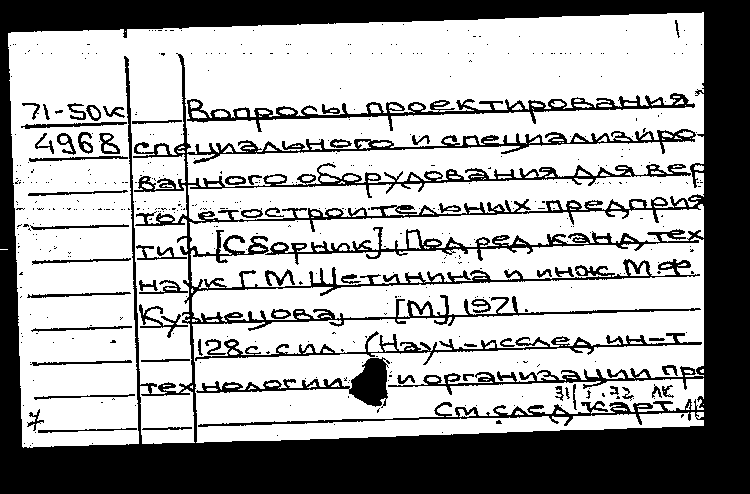 71-50к Вопросы проектирования
4968 специального и специализиро-
ванного оборудования для вер
толетостроительных предприя
тий. [Сборник]. (Под ред. канд. тех
наук Г.М. Щетинина и инж. М.Ф.
Кузнецова, [М.], 1971.
128 с. с ил. (Науч.-исслед. ин-т
технологии и организации про
31/I-72 ЛК
См. след. карт.
7